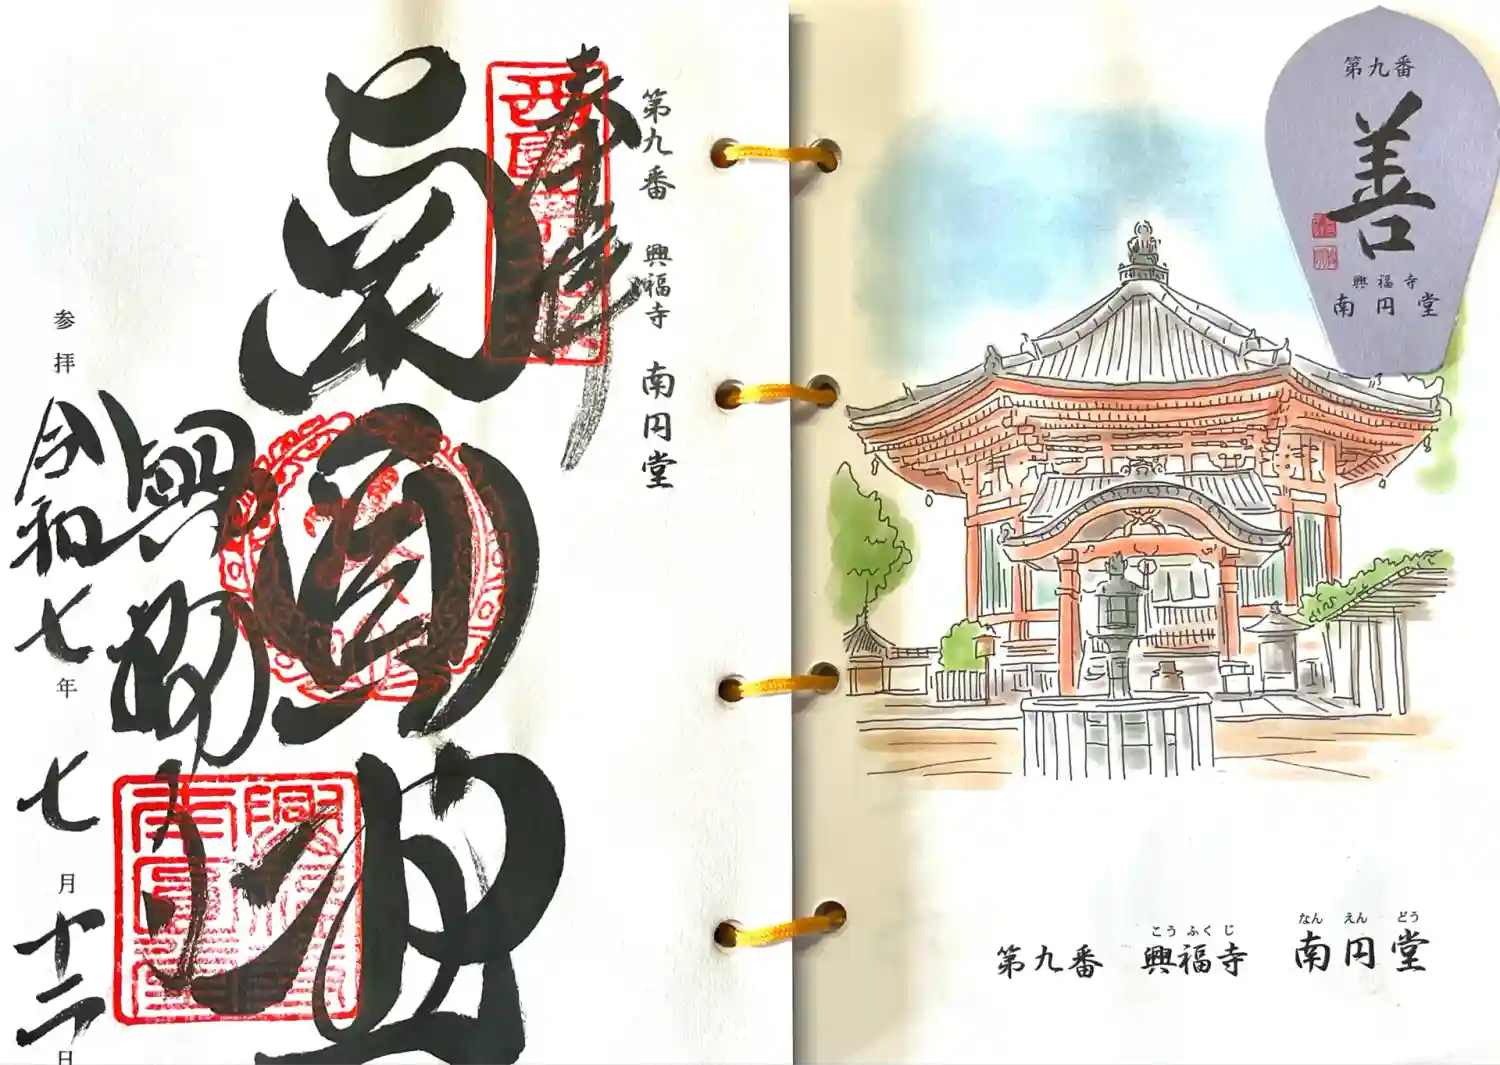 奉拝
第九番 興福寺 南円堂
南圓堂
興福寺
参拝
令和七年 七月十二日
西国第九番
第九番
善
興福寺
南円堂
こうふくじ なんえんどう
第九番 興福寺 南円堂